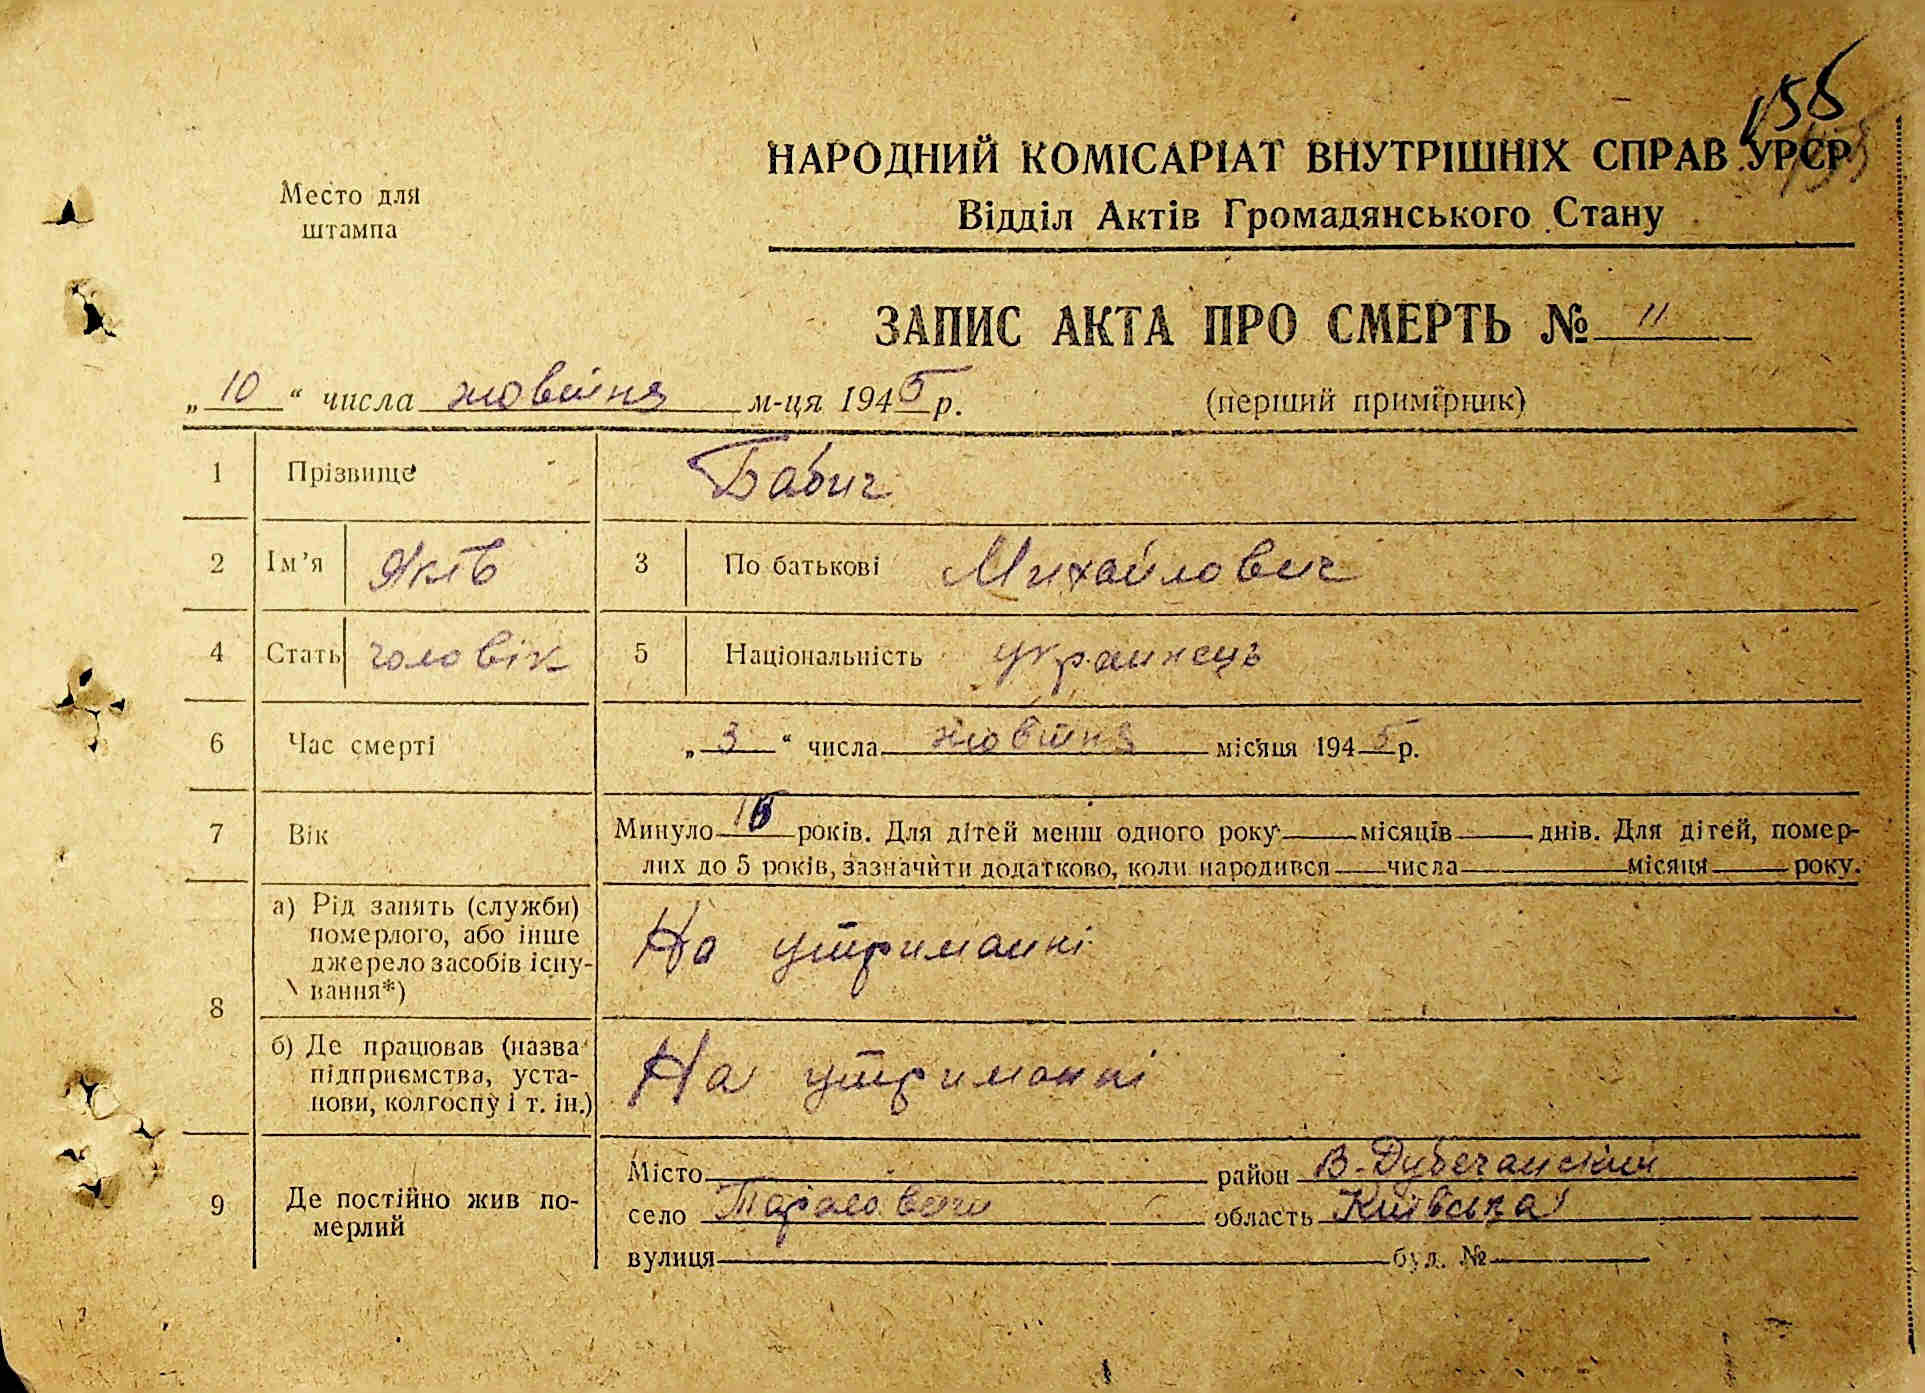 155
Место для
штампа
НАРОДНИЙ КОМІСАРІАТ ВНУТРІШНІХ СПРАВ УРСР
Відділ Актів Громадянського Стану
ЗАПИС АКТА ПРО СМЕРТЬ № 11
„10“ числа жовтня м-ця 1945 р. (перший примірник)
1 Прізвище Бабич
2 Ім’я Яків 3 По батькові Михайлович
4 Стать чоловік 5 Національність украинець
6 Час смерті „3“ числа жовтня місяця 1945 р.
7 Вік Минуло років. Для дітей менш одного року місяців днів. Для дітей, помер-
лих до 5 років, зазначити додатково, коли народився числа місяця року.
8 а) Рід занять (служби)
померлого, або інше
джерело засобів існу-
вання*) На утриманні
б) Де працював (назва
підприємства, уста-
нови, колгоспу і т. ін.) На утриманні
9 Де постійно жив по-
мерлий
Місто район В-Дубечанский
село область Київська
вулиця буд. №